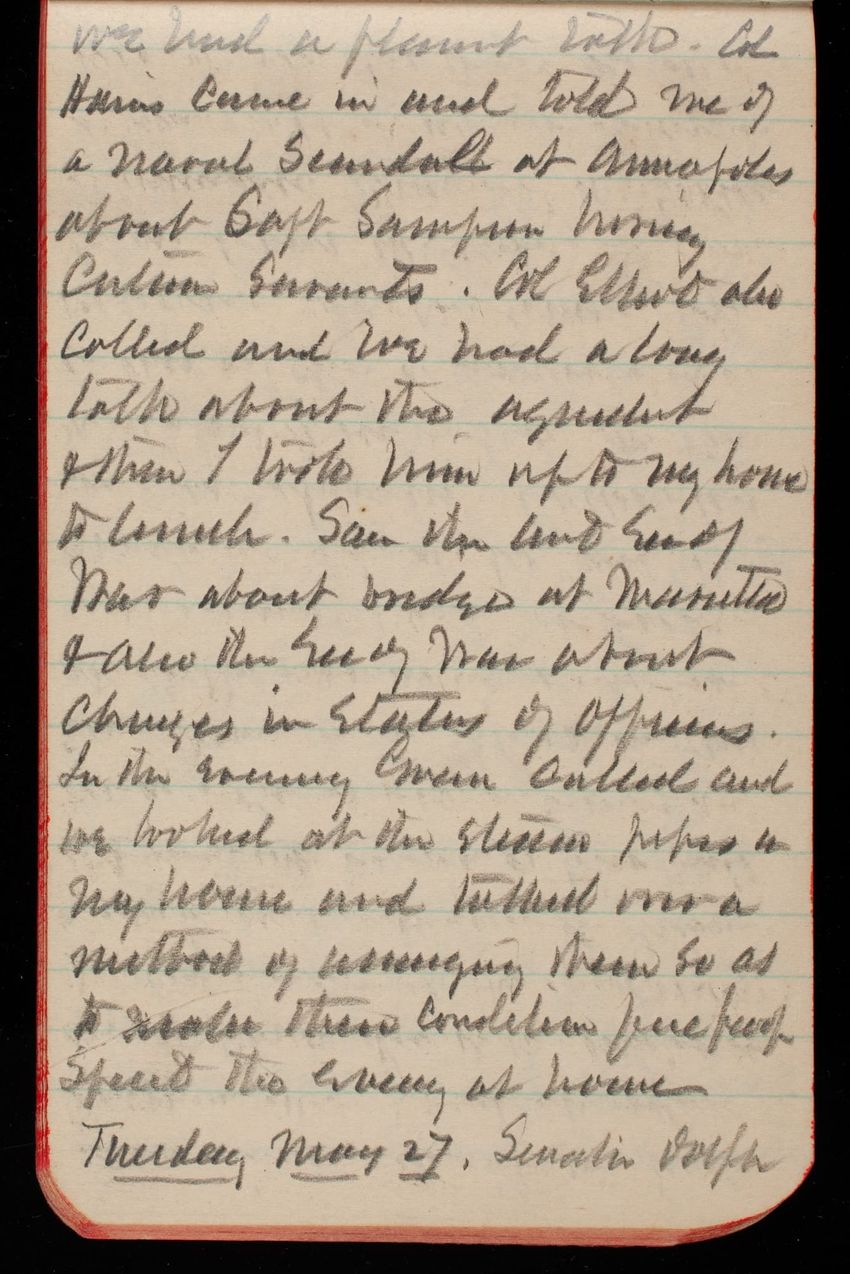 we had a plesant talk. Col
Hains came in and told me of
a naval Scandall at Annapolis
about Capt Sampson
Certain Servants. Col Elliott also
Called and we had a long
talk about the
& then I took him up to my house
to lunch. Saw the and Secy of
War about bridge at Marietta
& also the Secy of War about
Changes in Status of Officers.
In the evening Cowen Called and
we looked at the steam pipes in
my house and talked over a
method of arranging them so as
to make their condition fire proof
Spent the evening at home
Tuesday May 27. Senator Dolph